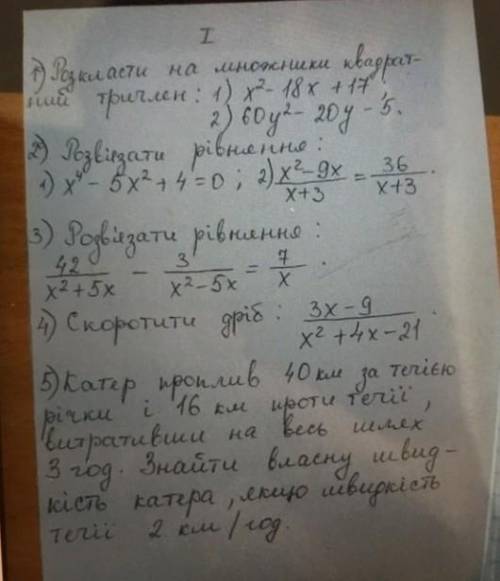 I
1) Розкласти на множники квадрат-
ний тричлен: 1) x² - 18x + 17;
2) 60y² - 20y - 5.
2) Розв'язати рівняння:
1) x⁴ - 5x² + 4 = 0; 2) (x² - 9x)/(x + 3) = 36/(x + 3).
3) Розв'язати рівняння:
42/(x² + 5x) - 3/(x² - 5x) = 7/x.
4) Скоротити дріб: (3x - 9)/(x² + 4x - 21).
5) Катер проплив 40 км за течією
річки і 16 км проти течії,
витративши на весь шлях
3 год. Знайти власну швид-
кість катера, якщо швидкість
течії 2 км/год.